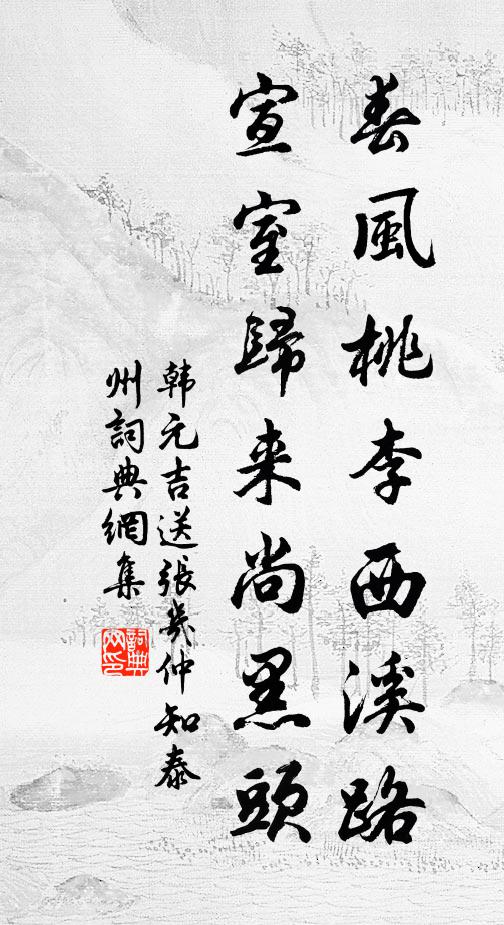 春風桃李西溪路
宣室歸来尚黑頭
韩元吉送張幾仲知泰
州詞典網集
詞典網印